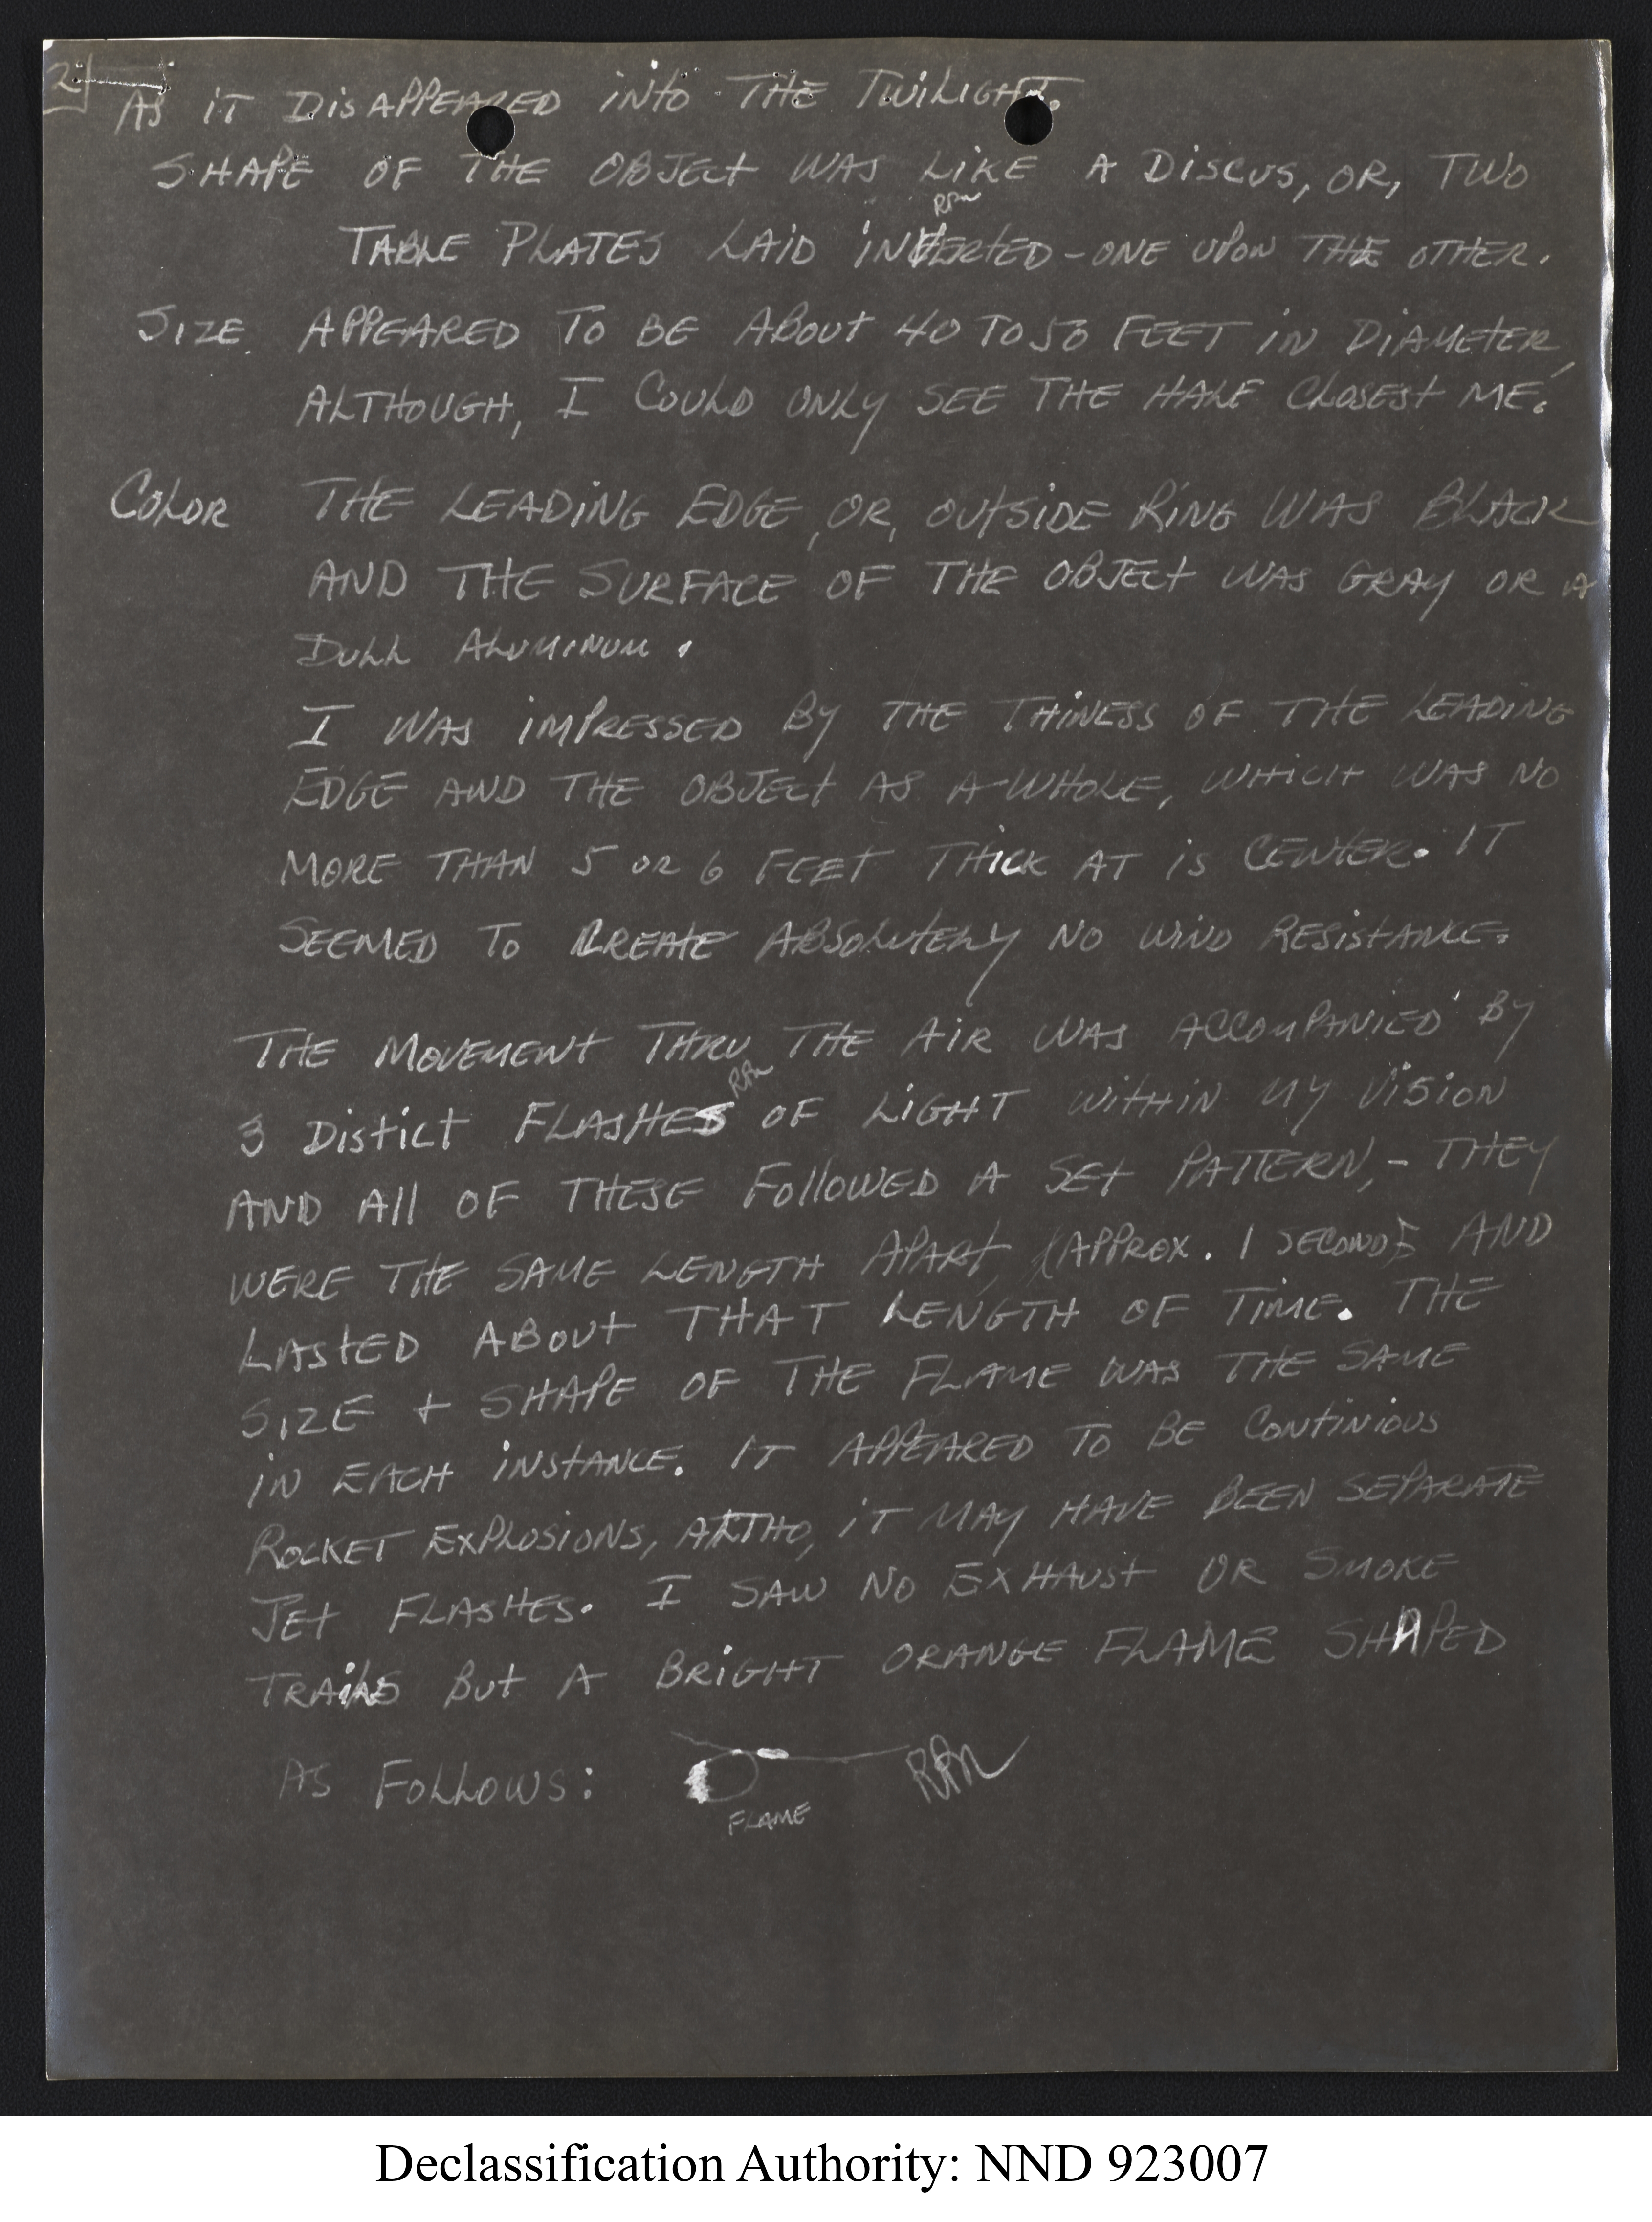 2
AS iT DiSAPPEARED iNtO THE TWiLiGHT.
SHAPE OF THE OBJEct WAS LiKE A DiSCUS, OR, TWO
RPM
TABLE PLATES LAiD iNVERTED - ONE UPON THE OTHER.
SIZE APPEARED TO BE ABOUt 40 TO 50 FEET iN DiAMEtER,
ALTHOUGH, I COULD ONLY SEE THE HALF CLOSESt ME.
COLOR THE LEADiNG EDGE, OR, OUtSiDE RiNG WAS BLACK
AND THE SURFACE OF THE OBJEct WAS GRAY OR A
DULL ALUMINUM.
I WAS iMPRESSED BY THE THiNESS OF THE LEADiNG
EDGE AND THE OBJEct AS A-WHOLE, WHiCH WAS NO
MORE THAN 5 OR 6 FEET THiCK AT iS CENTER. IT
SEEMED TO CREAtE ABSOLUtELY NO WIND RESiStANCE.
THE MOVEMENt THRU THE AiR WAS ACCOMPANiED BY
3 DiStict FLASHES OF LiGHT WitHiN MY ViSiON
AND All OF THESE FollOWED A SEt PATTERN, - THEY
WERE THE SAME LENGTH APARt, (APPROX. 1 SECOND) AND
LAStED ABOUt THAT LENGTH OF TiME. THE
SIZE + SHAPE OF THE FLAME WAS THE SAME
iN EACH iNStANCE. IT APPEARED TO BE CONtiNiOUS
ROCKET EXPLOSiONS, ALTHO, iT MAY HAVE BEEN SEPARATE
JEt FLASHES. I SAW NO EXHAUSt OR SMOKE
TRAiLS BUt A BRiGHT ORANGE FLAME SHAPED
AS FOLLOWS: RPM
FLAME
Declassification Authority: NND 923007